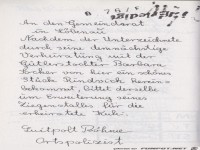 An den Gemeinderat
in Löbenau
Nachdem der Unterzeichnete
durch seine demnächstige
Verheiratung mit der
Gütlerstochter Barbara
hier ein schönes
Stück Rindvieh
bekommt, bittet derselbe
um Erweiterung seines
Ziegenstalles für die
erheiratete Kuh.
Luitpolt Höhne
Ortspolizist